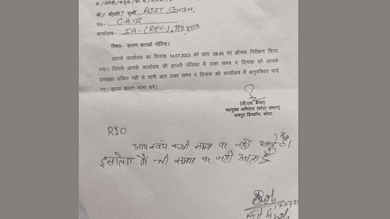 श्री/ श्रीमति/ सुश्री AJIT SINGH,
पद CA-II
कार्यालय- IA-(REV.), जयपुर
विषय:- कारण बताओ नोटिस।
आपके कार्यालय का दिनांक 14.07.2023 को प्रातः 09.45 पर औचक निरीक्षण किया
गया। जिसमें आपके कार्यालय की हाजरी पंजिका में उक्त समय व दिनांक को आपके
हस्ताक्षर अंकित नहीं थे यानी आप उक्त समय व दिनांक को कार्यालय में अनुपस्थित पाये
गए। कृपया कारण स्पष्ट करें।
जयपुर डिस्कॉम, कोटा
आप स्वयं कभी समय पर नहीं आते है।
इसलिए मैं भी समय पर नहीं आता हूँ